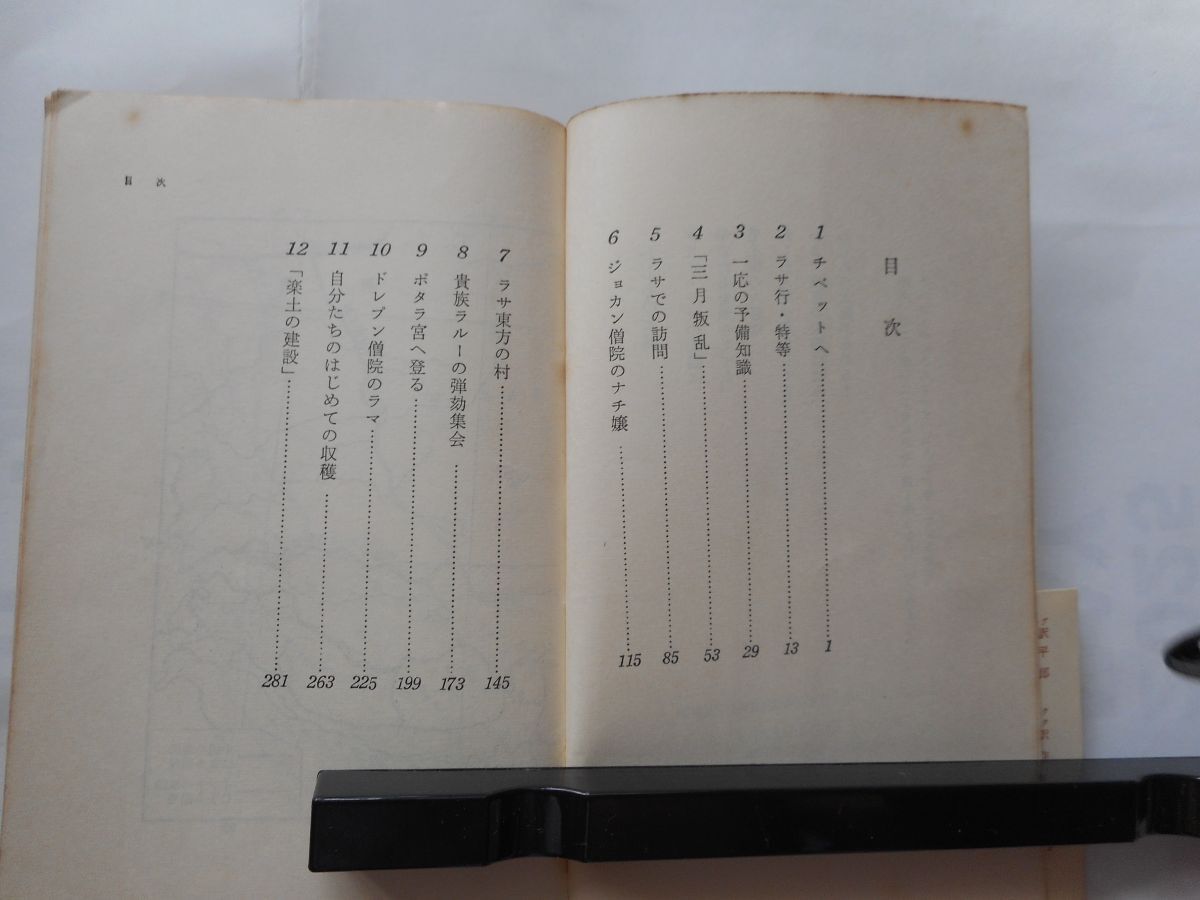 目次
1 チベットへ……1
2 ラサ行・特等……13
3 一応の予備知識……29
4 「三月叛乱」……53
5 ラサでの訪問……85
6 ジョカン僧院のナチ嬢……115
目次
7 ラサ東方の村……145
8 貴族ラルーの弾劾集会……173
9 ポタラ宮へ登る……199
10 ドレプン僧院のラマ……225
11 自分たちのはじめての収穫……263
12 「楽土の建設」……281